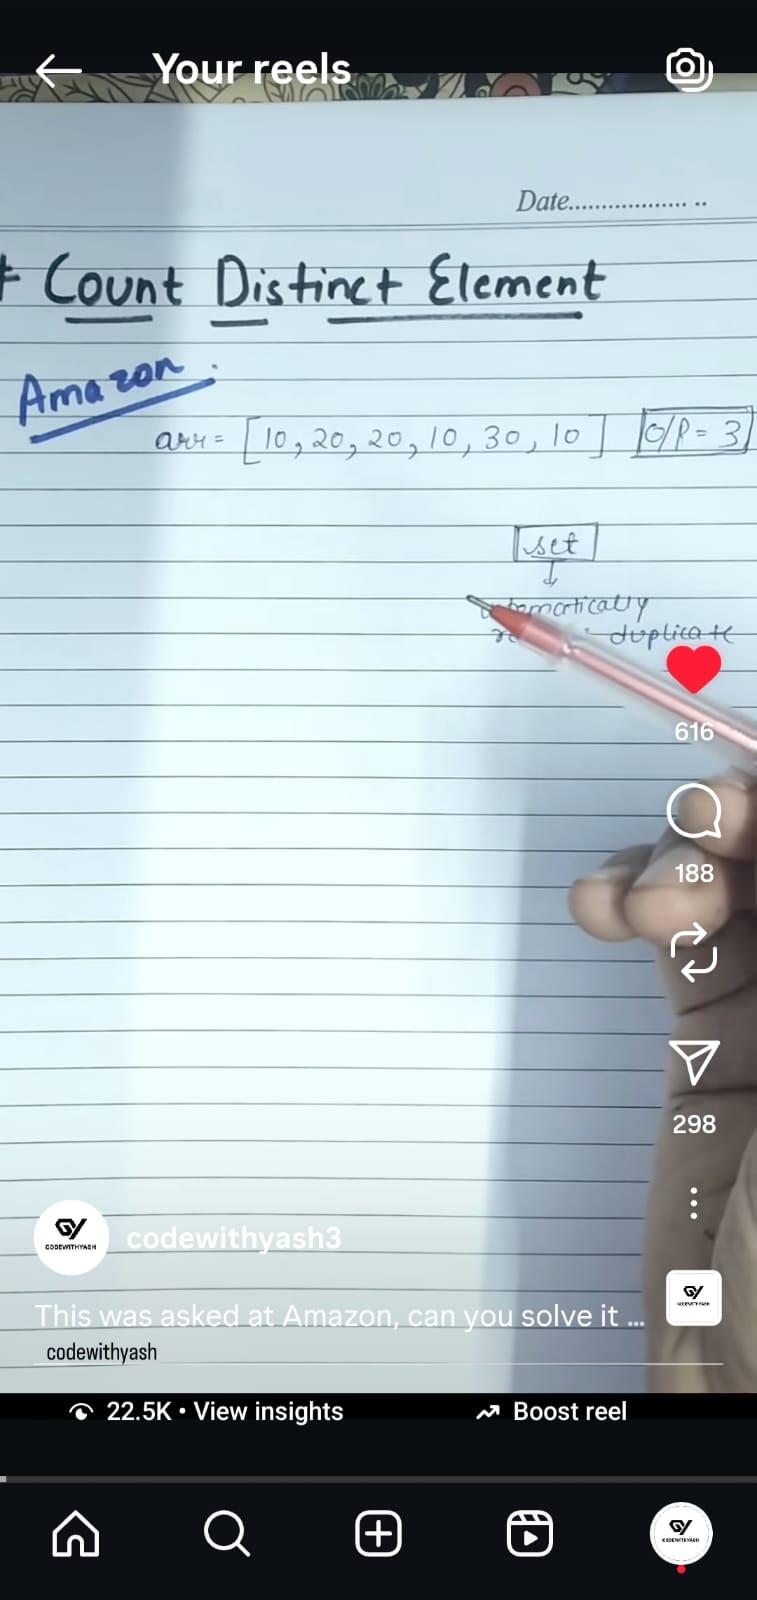 Your reels
Date.....................
Count Distinct Element
Amazon.
arr = [10, 20, 20, 10, 30, 10] O/P = 3
set
duplicate
616
188
298
GY
CODEWITHYASH
codewithyash3
This was asked at Amazon, can you solve it ...
codewithyash
22.5K • View insights
Boost reel